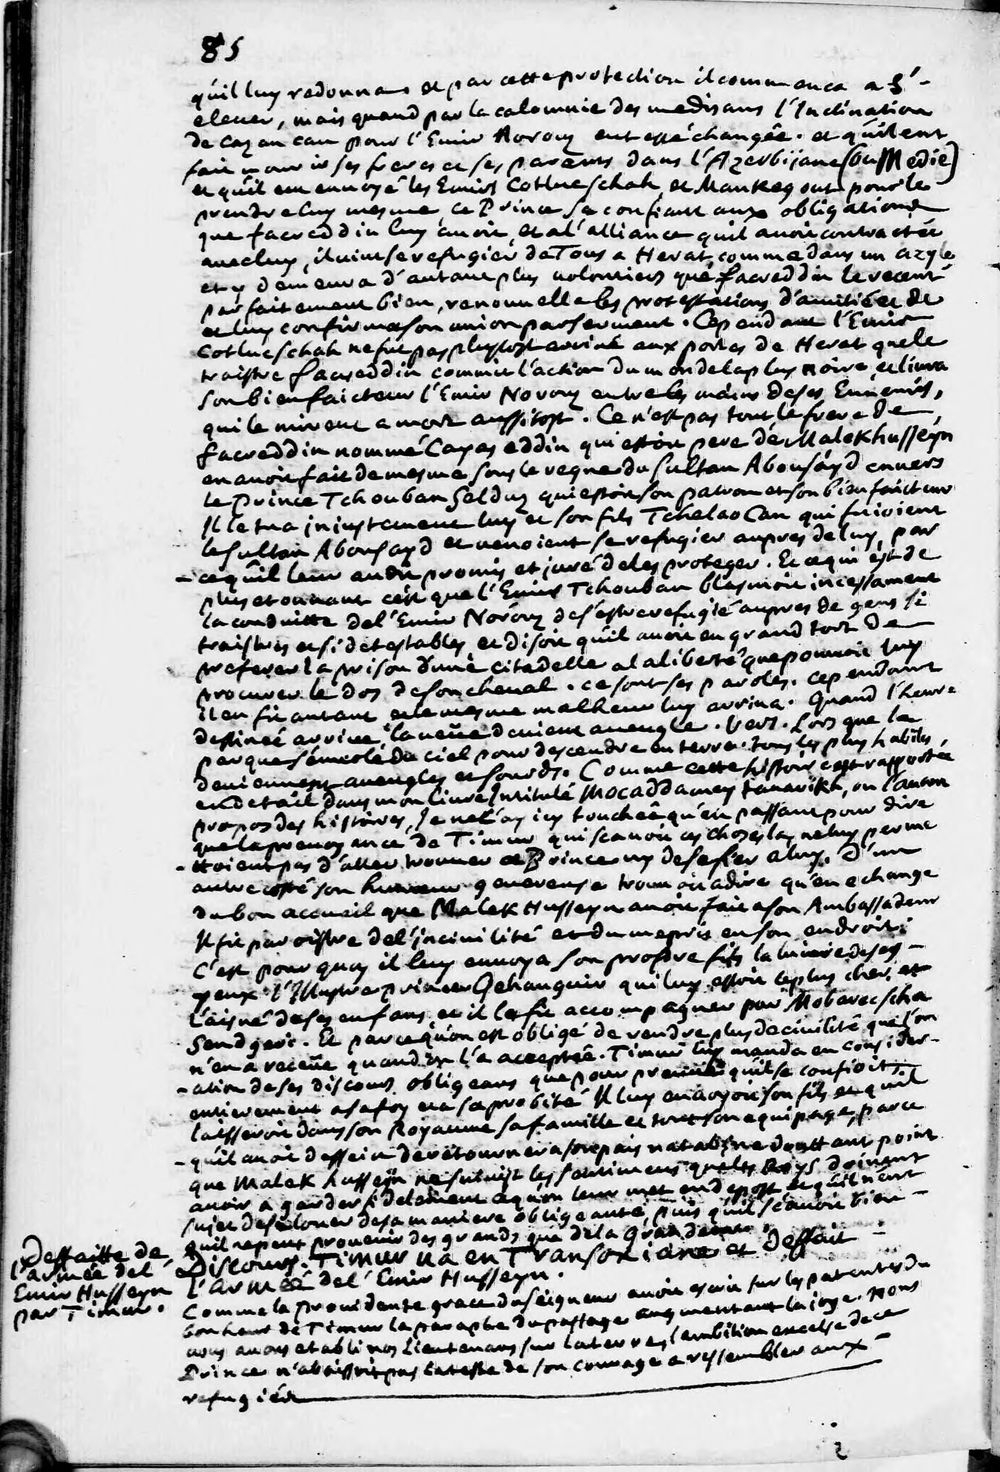 85
qu'il luy redonna. et par cette protection il commenca a s'-
elever, mais quand par la calomnie des medisans l'Inclination
de Cazan can pour l'Emir Norouz eut esté changée. et qu'il eut
fait mourir ses freres et ses parents dans l'Azerbijane (ou Medie)
et qu'il eut envoyé les Emirs Cotlucschah, et Mankegout pour le
prendre luy mesme, ce Prince se confiant aux obligations
que facreddin luy avoit, et a l'alliance qu'il avoit contractée
avec luy, il vint se refugier de Tous a Herat, comme dans un azyle
et y demeura d'autant plus volontiers que facreddin le receut
parfaitement bien, renouvella les protestations d'amitiée et de
et luy confirma son union par serment. Cependant l'Emir
Cotlucschah ne fut pas plustost arrivé aux portes de Herat que le
traistre facreddin commit l'action du monde la plus noire, et livra
son bienfaicteur l'Emir Norouz entre les mains de ses Ennemis,
qui le mirent a mort aussitost. Ce n'est pas tout le frere de
facreddin nommé Cayaseddin qui estoit pere de Malek husseyn
en avoit fait de mesme sous le regne du sultan Abousayd envers
le Prince Tchouban Selduz qui estoit son patron et son bienfaicteur
Il le tua injustement luy et son fils Tchelao Can qui fuioient
le sultan Abousayd et venoient se refugier aupres de luy, par
- ce qu'il leur avoit promis et juré de les proteger. Et ce qui est de
plus etonnant c'est que l'Emir Tchouban blasmoit incessament
la conduitte de l'Emir Norouz de s'estre refugié aupres de gens si
traistres et si detestables, et disoit qu'il avoit eu grand tort de
preferer la prison d'une citadelle a la liberté que pouvoit luy
procurer le dos de son cheval. ce sont ses paroles. cependant
il en fit autant et le mesme malheur luy arriva. Quand l'heure
destinée arrive, la veüe devient aveugle. Vers. Lors que la
parque s'envole du ciel pour descendre en terre. tous les plus habiles,
deviennent aveugles et sourds. Comme cette histoire est rapportée
en detail dans mon livre Intitulé Mocaddamey tanarikh, ou l'avant
propos des histoires, Je ne l'ay icy touchée qu'en passant pour dire
que la prevoyance de Timur qui scavoit ces choses la, ne luy perme
- ttoient pas d'aller trouver ce Prince ny de se fier a luy. D'un
autre costé son humeur genereuse trouvoit a dire qu'en echange
du bon accueil que Malek Husseyn avoit fait a son Ambassadeur
Il fit paroistre de l'incivilité et du mepris en son endroit;
C'est pourquoy il luy envoya son propre fils la lumiere de ses -
yeux l'Illustre prince Gehanguir qui luy estoit le plus cher, et
l'aisné de ses enfans, et il le fit accompagner par Mobarecscha
Sendgeri. Et parce qu'on est obligé de rendre plus de civilité que l'on
n'en a receüe quand on l'a acceptée. Timur luy manda en consider-
- ation de ses discours obligeans que pour preuve qu'il se confioit
entierement a sa foy et a sa probité Il luy envoyoit son fils et qu'il
laisseroit dans son Royaume sa famille et tout son equipage, parce
- qu'il avoit dessein de retourner a son pais natal, ne doutant point
que Malek husseyn ne suivist les sentimens que les Roys doivent
avoir a garder fidelement ce qu'on leur met en depost et qu'il n'eut
sujet de se louer de sa maniere obligeante, puis qu'il scavoit bien -
qu'il ne peut provenir des grands que de la Grandeur.
Discours. Timur va en Transoxiane et deffait -
l'armée de l'Emir Husseyn.
Deffaitte de
l'armée de l'
Emir Husseyn
par Timur.
Comme la providente grace du seigneur avoit escrit sur les patentes du
bonheur de Timur la paraphe du passage augmentant la joye. Nous
vous avons etabli nos Lieutenans sur la terre, l'ambition excelse de ce
Prince n'abaissoit pas la teste de son courage a ressembler aux -
refugiéz
2